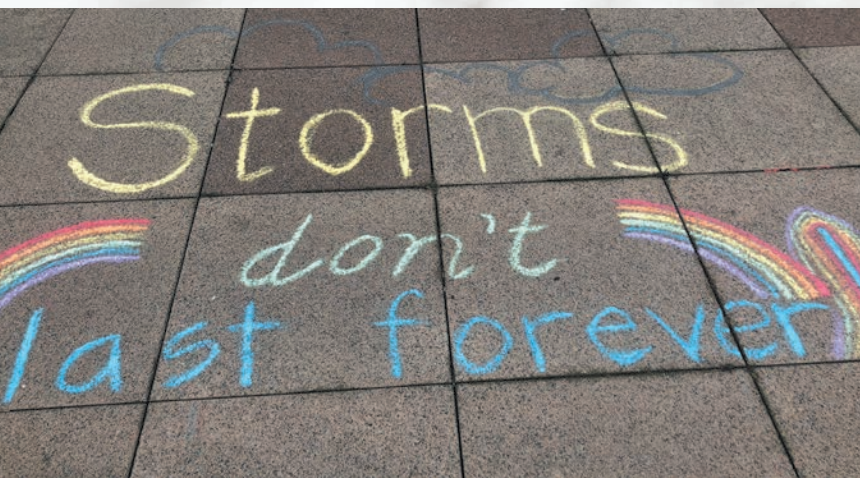 Storms
don't
last forever